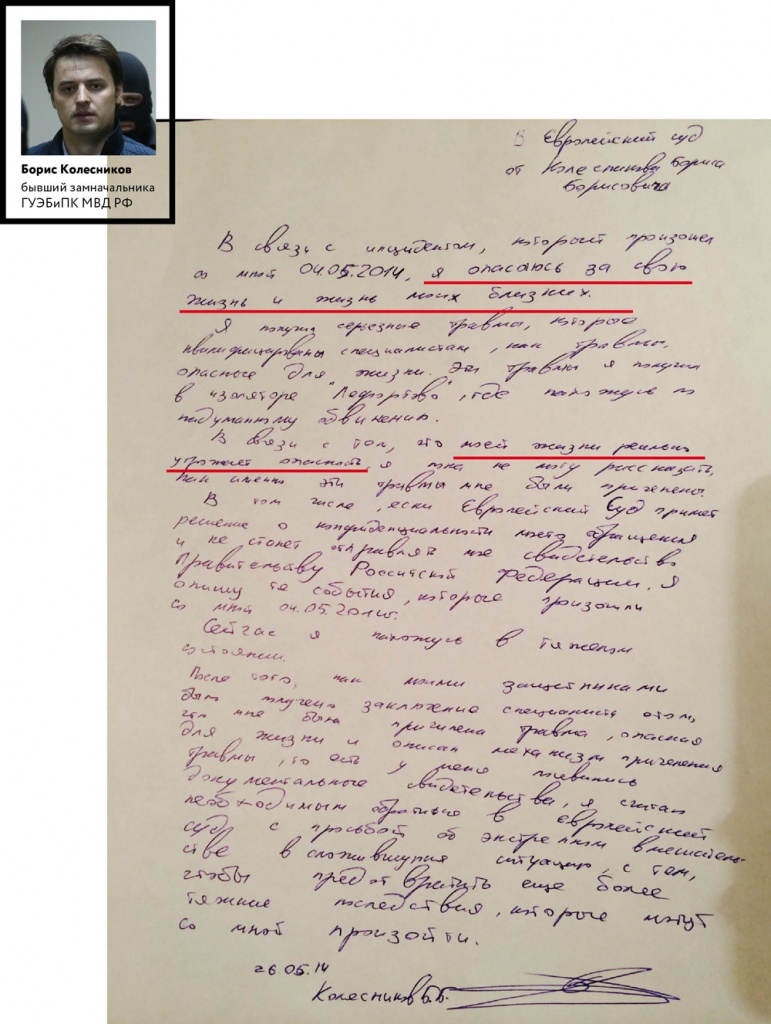 Борис Колесников
бывший замначальника
ГУЭБиПК МВД РФ
В Европейский суд
от Колесникова Бориса
Борисовича
В связи с инцидентом, который произошел
со мной 04.05.2014, я опасаюсь за свою
жизнь и жизнь моих близких.
Я получил серьезные травмы, которые
квалифицированы специалистам, как травмы,
опасные для жизни. Эти травмы я получил
в изоляторе "Лефортово", где нахожусь по
надуманному обвинению.
В связи с тем, что моей жизни реально
угрожает опасность, я пока не могу рассказать,
как именно эти травмы мне были причинены.
В том числе, если Европейский Суд примет
решение о конфиденциальности моего обращения
и не станет отправлять мое свидетельство
Правительству Российской Федерации, я
опишу те события, которые произошли
со мной 04.05.2014.
Сейчас я нахожусь в тяжелом
состоянии.
После того, как моими защитниками
было получено заключение специалиста о том,
что мне была причинена травма, опасная
для жизни и описан механизм причинения
травмы, то есть у меня появились
документальные свидетельства, я считаю
необходимым обратиться в Европейский
суд с просьбой об экстренном вмешатель-
стве в сложившуюся ситуацию, с тем,
чтобы предотвратить еще более
тяжкие последствия, которые могут
со мной произойти.
26.05.14
Колесников Б.Б.